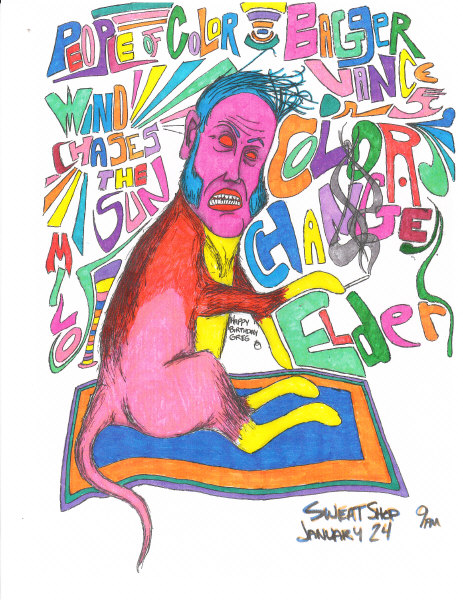 PEOPLE OF COLOR
BAGGER
VANCE
WIND
CHASES
THE
SUN
COLORS
CHANGE
MILO
ELDER
HAPPY
BIRTHDAY
GREG
SWEAT SHOP
9PM
JANUARY 24